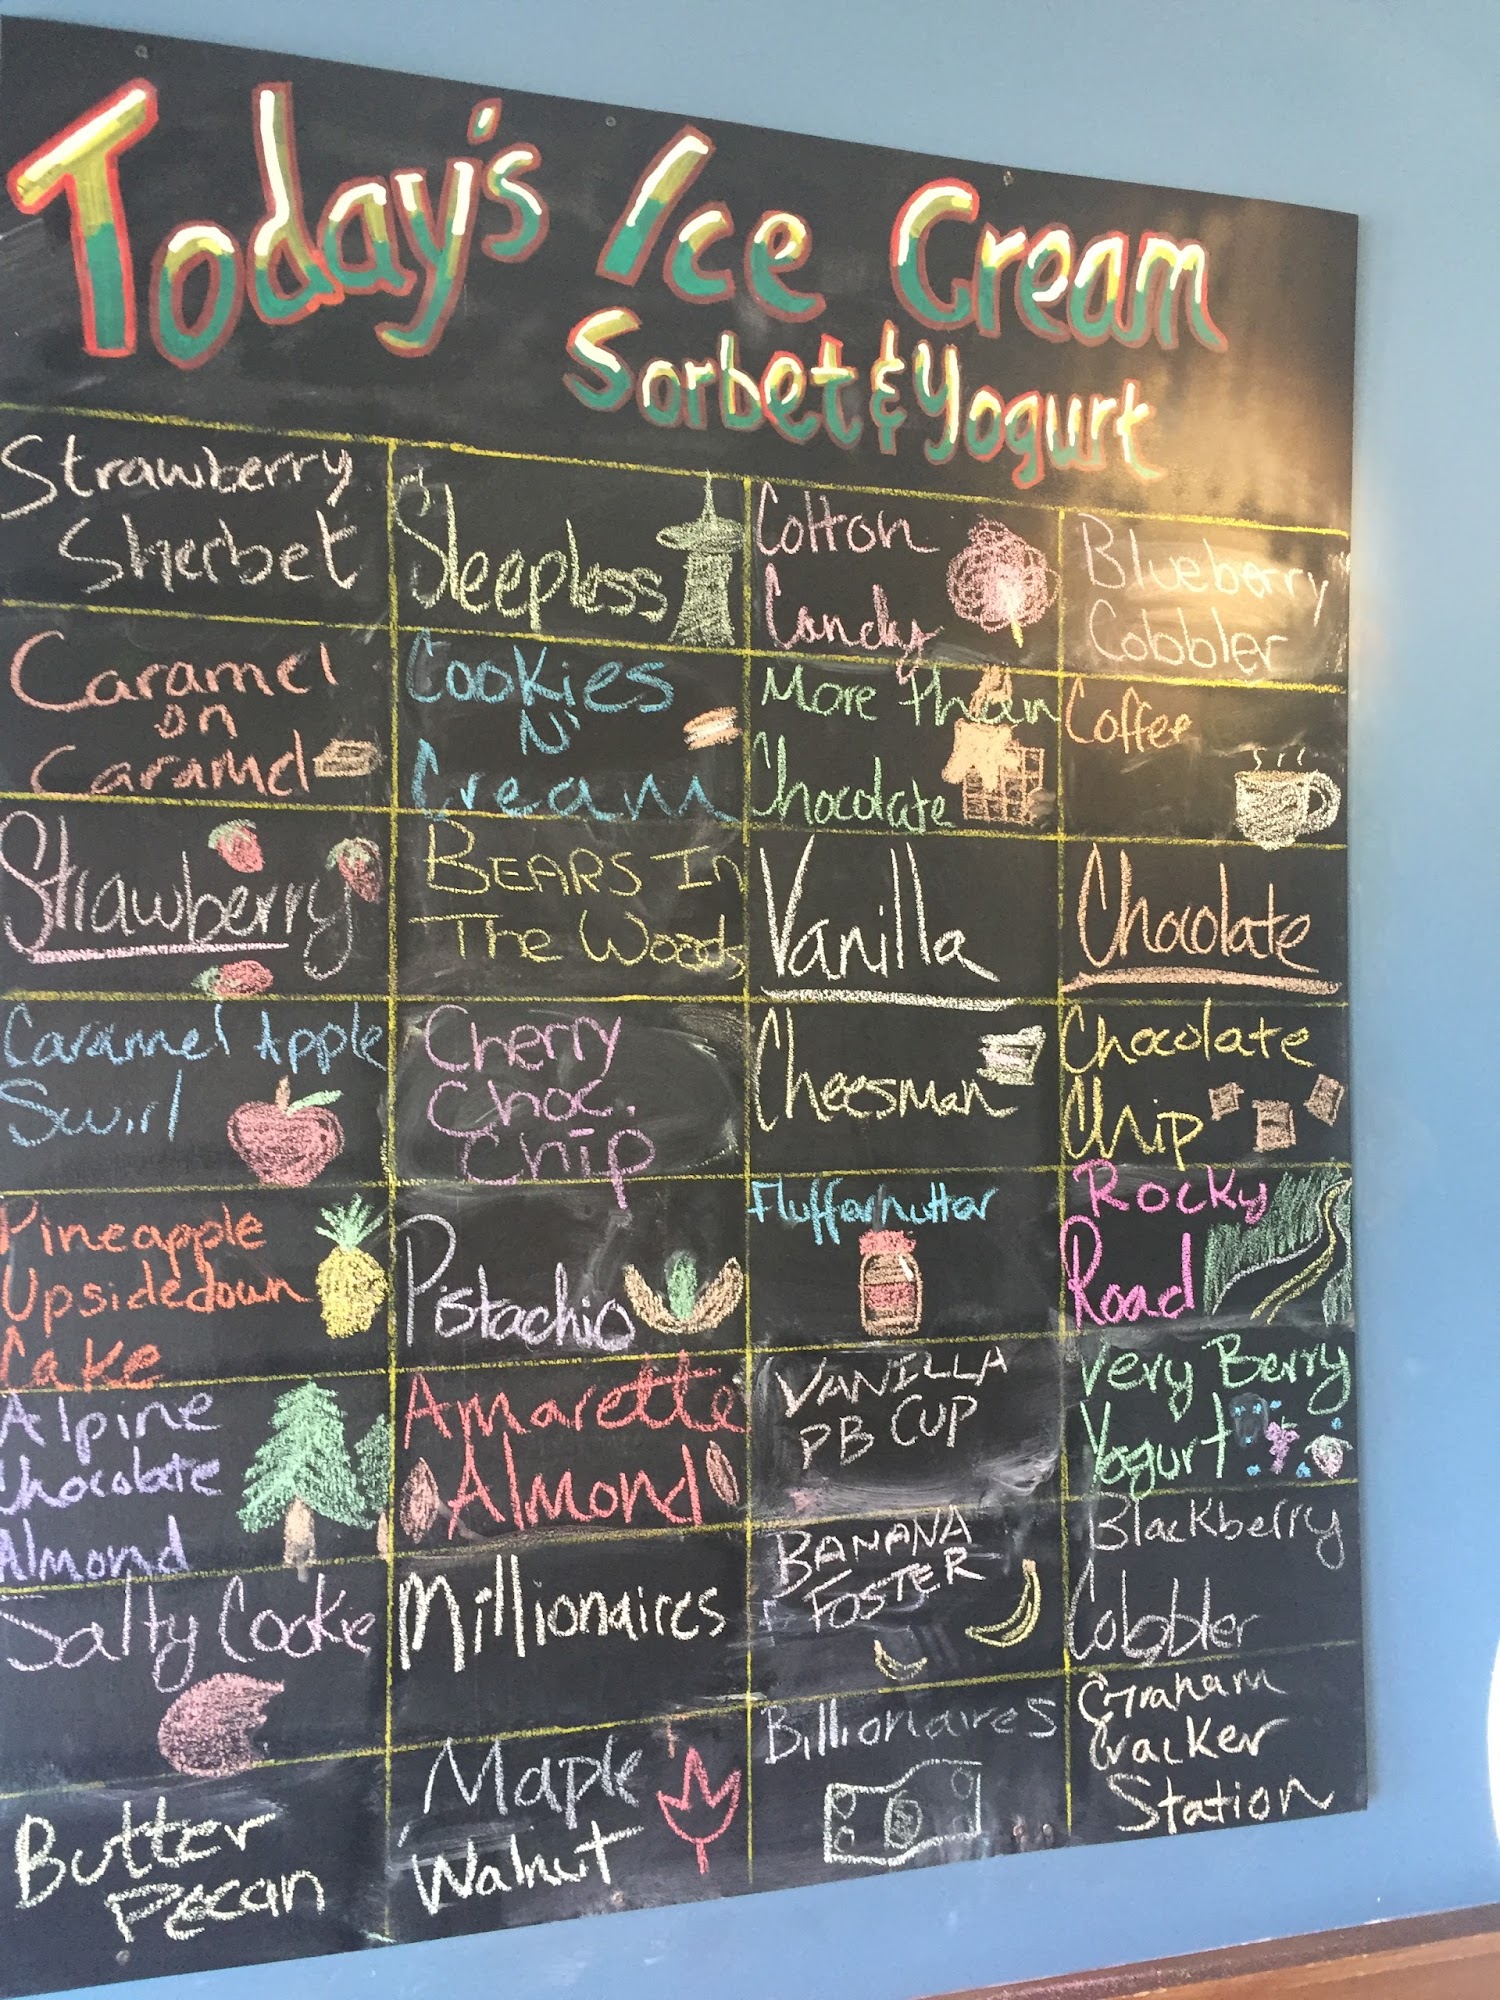 Today's Ice Cream
Sorbet & Yogurt
Strawberry
Sherbet
Sleepless
Cotton
Candy
Blueberry
Cobbler
Caramel
on
Caramel
Cookies
N'
Cream
More than
Chocolate
Coffee
Strawberry
BEARS In
The Woods
Vanilla
Chocolate
Caramel Apple
Swirl
Cherry
Choc.
Chip
Cheesman
Chocolate
Chip
Pineapple
Upsidedown
Cake
Pistachio
Fluffernutter
Rocky
Road
Alpine
Chocolate
Almond
Amarette
Almond
VANILLA
PB CUP
Very Berry
Yogurt
Salty Cookie
Millionaires
BANANA
FOSTER
Blackberry
Cobbler
Butter
Pecan
Maple
Walnut
Billionaires
Graham
Cracker
Station